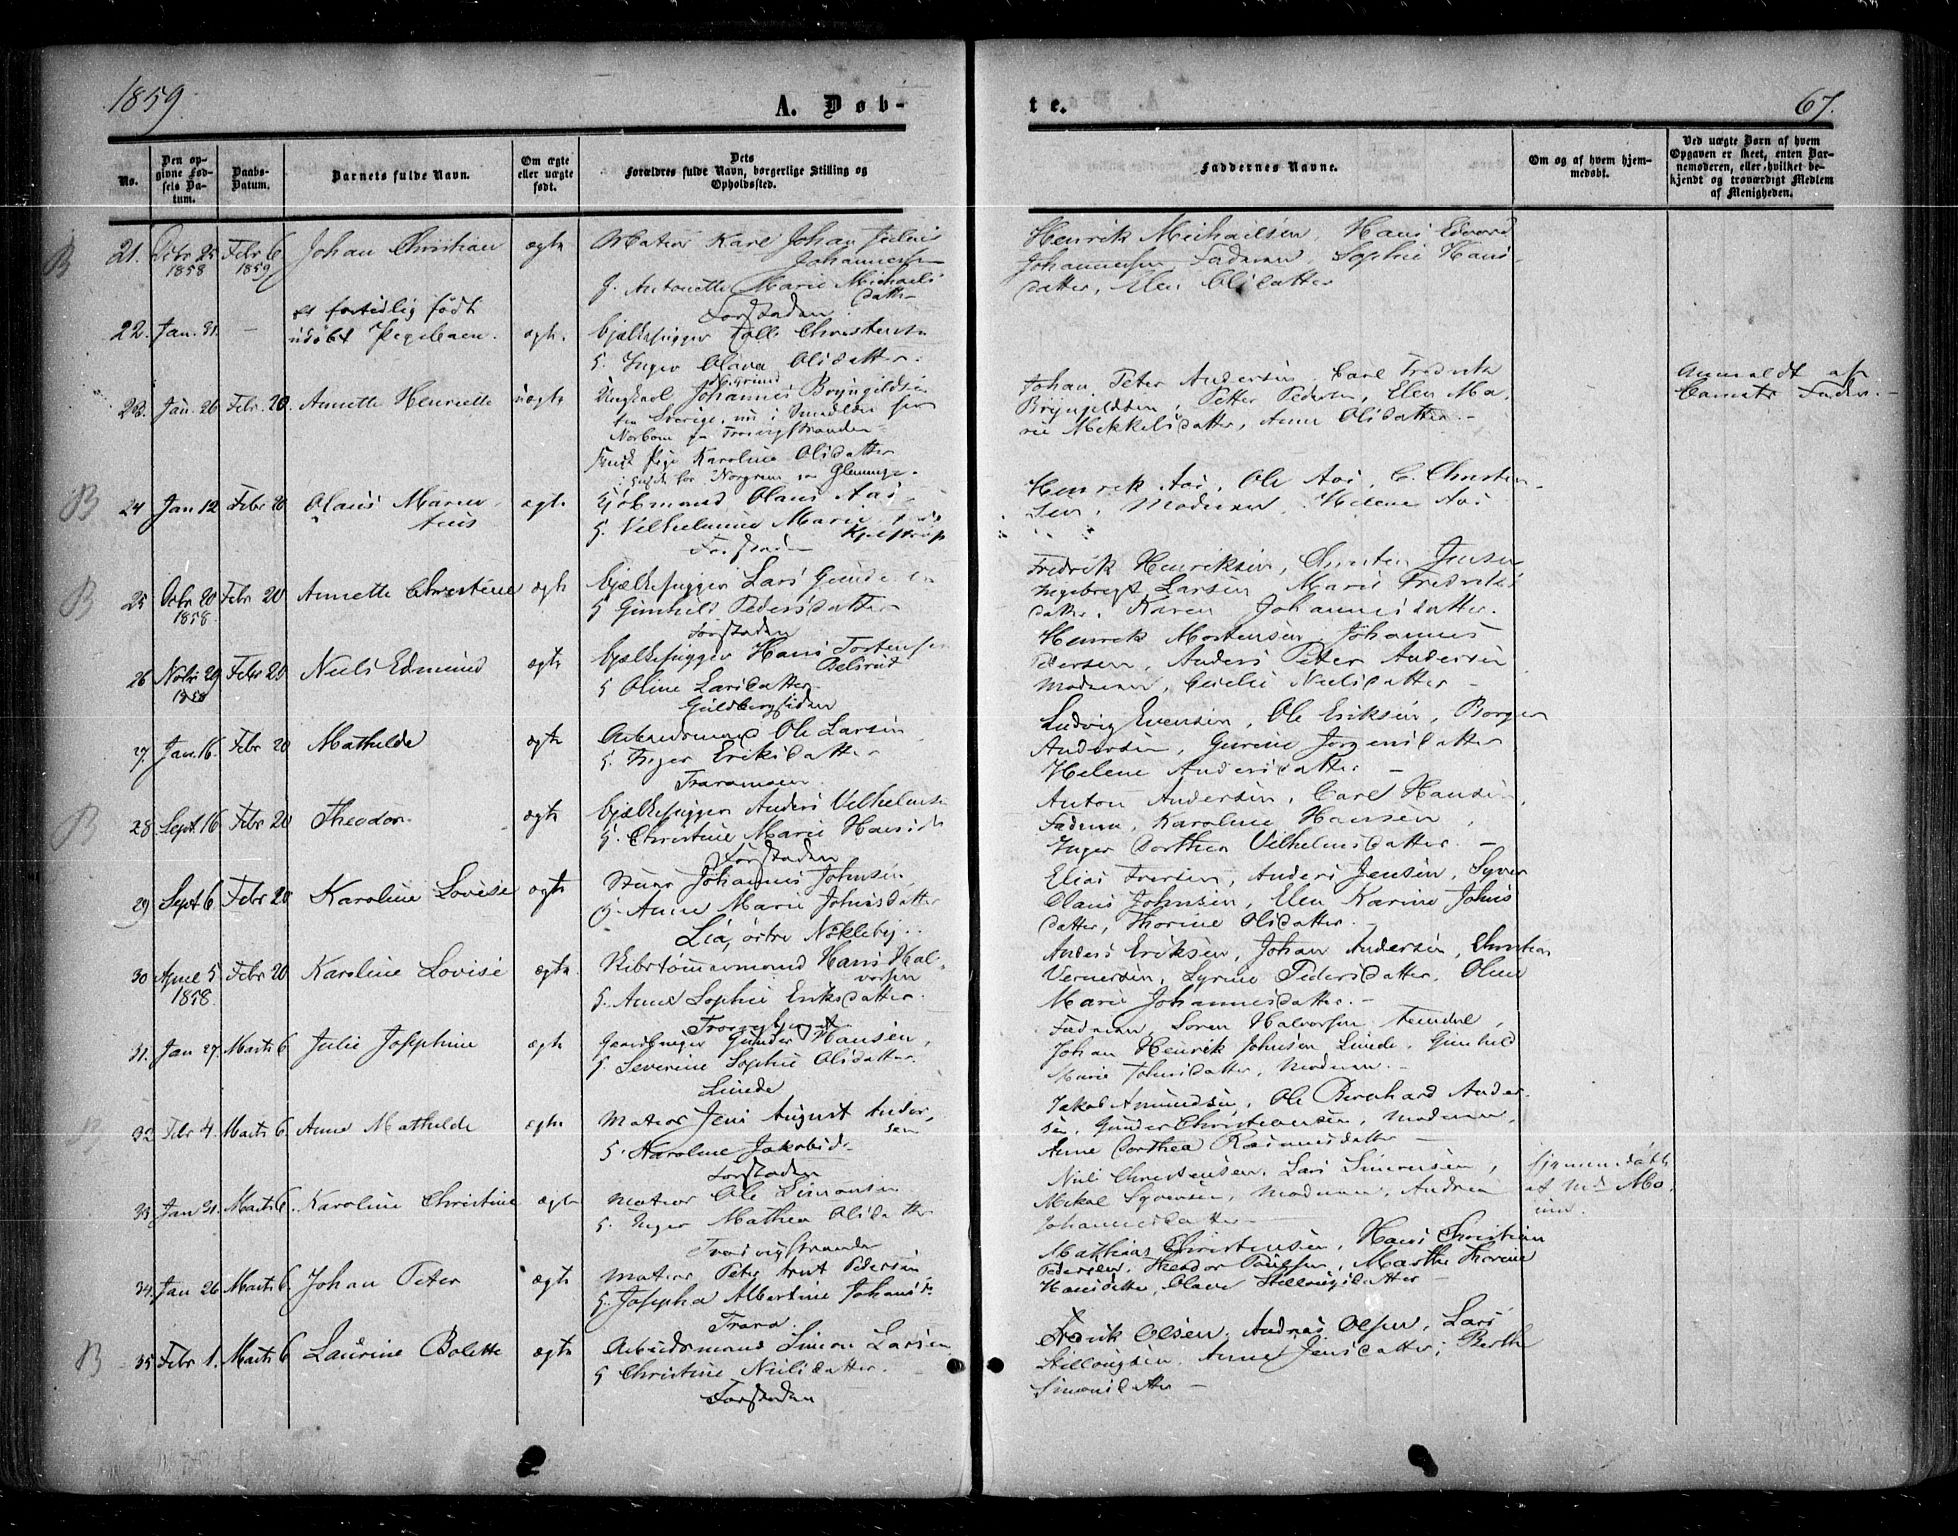 1859.
A. Døb-
te.
67.
No.
Den op-
givne Fød-
sels Da-
tum.
Daabs-
Datum.
Barnets fulde Navn.
Om ægte
eller uægte
født.
Dets
Forældres fulde Navn, borgerlige Stilling og
Opholdssted.
Faddernes Navne.
Om og af hvem hjem-
medøbt.
Ved uægte Barn af hvem
Opgaven er skeet, enten Bar-
nemoderen, eller hvilket be-
kjendt og troværdigt Medlem
af Menigheden.
B
21. Octbr 25 Febr 6 Johan Christian ægte Matros Karl Johan Julius
1858 1859
Johannesen
G. Antonette Marie Michaels
datter
Forstaden
Henrik Michailsen Hans Edvard
Johannesen Faderen, Sophie Hans
datter, Elen Olsdatter
22. Jan. 31. — et fortidlig født
udøbt Pigebarn. ægte. Bjelkehugger Christensen
G. Inger Olava Olsdatter.
23. Jan. 26 Febr. 20. Annette Henriette uægte Ungkarl Johannes Bryngildsen
fra Sverige, nu i
Pige Karoline Olsdatter
Johan Peter Andersen, Carl Fredrik
Bryngildsen, Petter Pedersen, Elen Ma-
rie Mekkelsdatter, Anne Olsdatter. —
Anmeldt af
Barnets Fader. —
B
24 Jan 12 Febr 20 Olaus Marius ægte Kjøbmand Olaus Aas
Aas
G. Vilhelmine Marie
Forstaden
Henrik Aas, Ole Aas, C. Christen-
sen, Moderen, Helene Aas
B
25 Octbr 20 Febr 20 Annette Christine ægte Bjelkehugger Lars
1858
G Gunhild Pedersdatter
Forstaden
Fredrik Henriksen, Christen Jensen
Ingebregt Larsen, Marie Fredriks
datter, Karen Johannesdatter.
26 Novbr 29 Febr 20 Niels Edmund ægte Bjelkehugger Hans Torstensen
1858
G Oline Larsdatter
Guldbergsiden
Henrik Mortensen, Johannes
Pedersen, Anders Peter Andersen
Moderen, Cecilie Nielsdatter —
27. Jan. 16. Febr 20 Mathilde ægte Arbeidsmand Ole Larsen
G. Inger Eriksdatter
Traramoen.
Ludvig Evensen, Ole Eriksen, Borger
Andersen, Gurine Jørgensdatter
Helene Andersdatter —
B
28. Sept. 16 Febr 20 Theodor ægte Bjelkehugger Anders Vilhelmsen
G. Christine Marie Hansdtr
Forstaden
Anton Andersen, Carl Hansen,
Faderen, Karoline Hansen,
Inger Dorthea Vilhelmsdatter. —
29 Sept 6 Febr 20 Karoline Lovise ægte Johannes Johnsen,
G. Anne Marie Johnsdatter
Lia, østre Nøkleby.
Elias Iversen, Anders Jensen, Syver
Olaus Johnsen, Elen Karine Johns
datter, Thorine Olsdatter. —
30 5 Febr 20 Karoline Lovise ægte Skibstømmermand Hans Hal-
1858.
vorsen
G. Anne Sophie Eriksdatter.
Anders Eriksen, Johan Andersen, Christian
Vernersen, Syrine Pedersdatter, Oline
Marie Johannesdatter. —
31. Jan 27. Marts 6 Julie Josephine ægte Gaardbruger Gunder Hansen,
G. Severine Sophie Olsdatter.
Linde
Faderen, Søren Halvorsen
Johan Henrik Johnsen Linde, Gunhild
Marie Johnsdatter, Moderen. —
32 Febr 4. Marts 6. Anne Mathilde ægte Matros Jens August Ander-
sen
G. Karoline Jakobsd.
Forstaden
Jakob Amundsen, Ole Bernhard Ander-
sen, Gunder Christiansen, Moderen,
Anne Dorthea Rasmusdatter —
33 Jan 31. Marts 6. Karoline Christine ægte Matros Ole Simonsen
G. Inger Mathea Olsdatter
Trosvigstranden
Nils Christensen, Lars Simonsen,
Mikal Syversen, Moderen, Andrea
Johannesdatter —
Hjemmedøbt
af Md. Mo
34. Jan 26 Marts 6. Johan Peter ægte Matros Peter Arnt Pedersen,
G. Josepha Albertine Johansd.
Trara.
Mathias Christensen, Hans Christian
Pedersen, Theodor Poulsen, Marthe Thorine
Hansdatter, Olave Stillaugsdatter —
B
35 Febr 1. Marts 6 Laurine Bolette ægte Arbeidsmand Simon Larsen
G Christine Nielsdatter.
Forstaden
Fredrik Olsen, Andreas Olsen, Lars
Stillaugsen, Anne Jensdatter, Berthe
Simonsdatter —